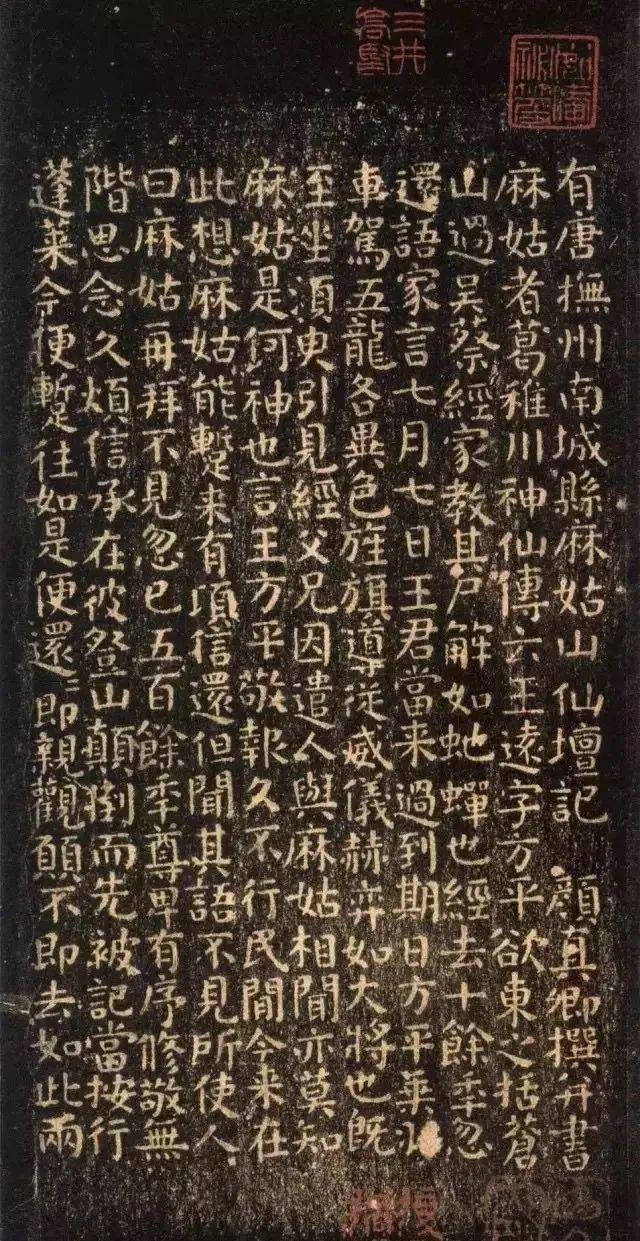 有唐撫州南城縣麻姑山仙壇記　顏真卿撰并書
麻姑者葛稚川神仙傳云王遠字方平欲東之括蒼
山過吳蔡經家教其尸解如虵蟬也經去十餘秊忽
還語家言七月七日王君當来過到期日方平乘羽
車駕五龍各異色旌旗導從威儀赫弈如大將也既
至坐須臾引見經父兄因遣人與麻姑相聞亦莫知
麻姑是何神也言王方平敬報久不行民間今来在
此想麻姑能蹔来有頃信還但聞其語不見所使人
曰麻姑再拜不見忽已五百餘秊尊卑有序修敬無
階思念久煩信承在彼登山顛倒而先被記當按行
蓬莱今便蹔往如是便還〻即親覲願不即去如此兩
三井高堅